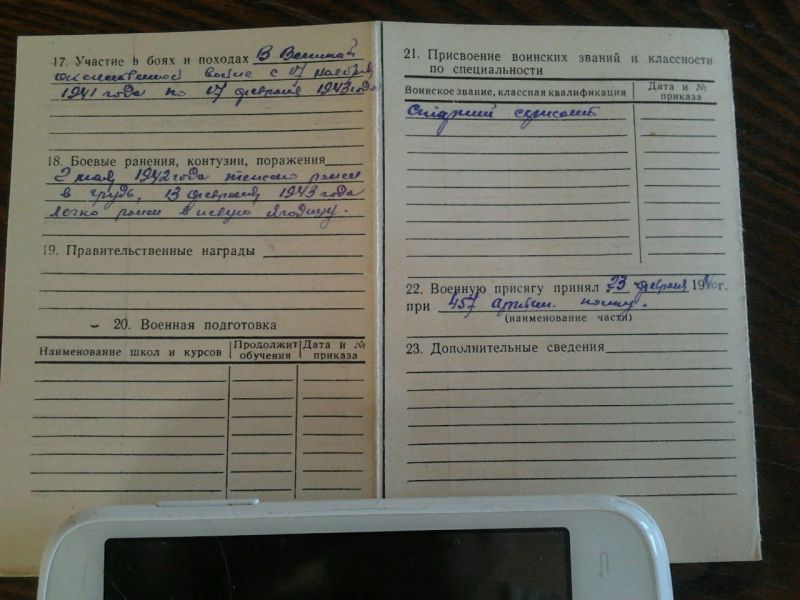 17. Участие в боях и походах В Великой
отечественной войне с 17 ноября
1941 года по 17 февраля 1943 года
18. Боевые ранения, контузии, поражения
2 мая 1942 года тяжело ранен
в грудь, 13 февраля 1943 года
легко ранен в левую ягодицу.
19. Правительственные награды
20. Военная подготовка
Наименование школ и курсов
Продолжит обучения
Дата и № приказа
21. Присвоение воинских званий и классности
по специальности
Воинское звание, классная квалификация
Дата и № приказа
Старший сержант
22. Военную присягу принял 23 февраля 1940 г.
при 457 артил. полку.
(наименование части)
23. Дополнительные сведения